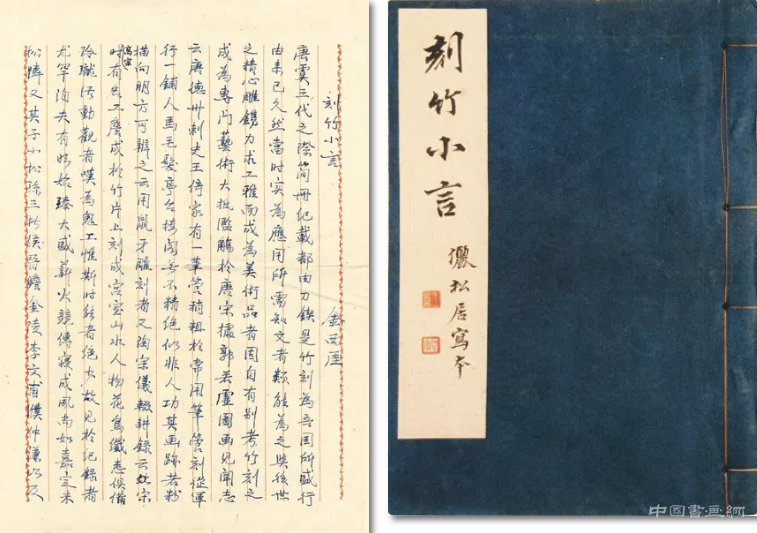 刻竹小言
金西厓
唐虞三代之際簡冊紀載都由刀鍥是竹刻為吾國所盛行
由来已久然當时实為應用所需知文者類能為之與後世
之精心雕鐫力求工雅而成為美術品者固自有别考竹刻之
成為專门藝術大抵濫觴於唐宋據郭若虚圖画見聞志
云唐德州刺史王倚家有一筆管稍粗於常用筆管刻從軍
行一鋪人馬毛髮亭台楼阁無不精绝似非人功其画跡若粉
描向明方可辨之云用鼠牙雕刻者又陶宗儀輟耕録云宋高宗
时有詹成於竹片上刻成宫室山水人物花鳥纖悉俱備
玲瓏活動觀者嘆為鬼工惟斯时能者绝少故见於纪録者
尤罕洵夫有明始臻大盛薪火競傳寖成風尚如嘉定朱
松隣又其子小松孫三松侯崤曾金陵李文甫濮仲謙以及
刻竹小言
儷松居寫本
中国書画網